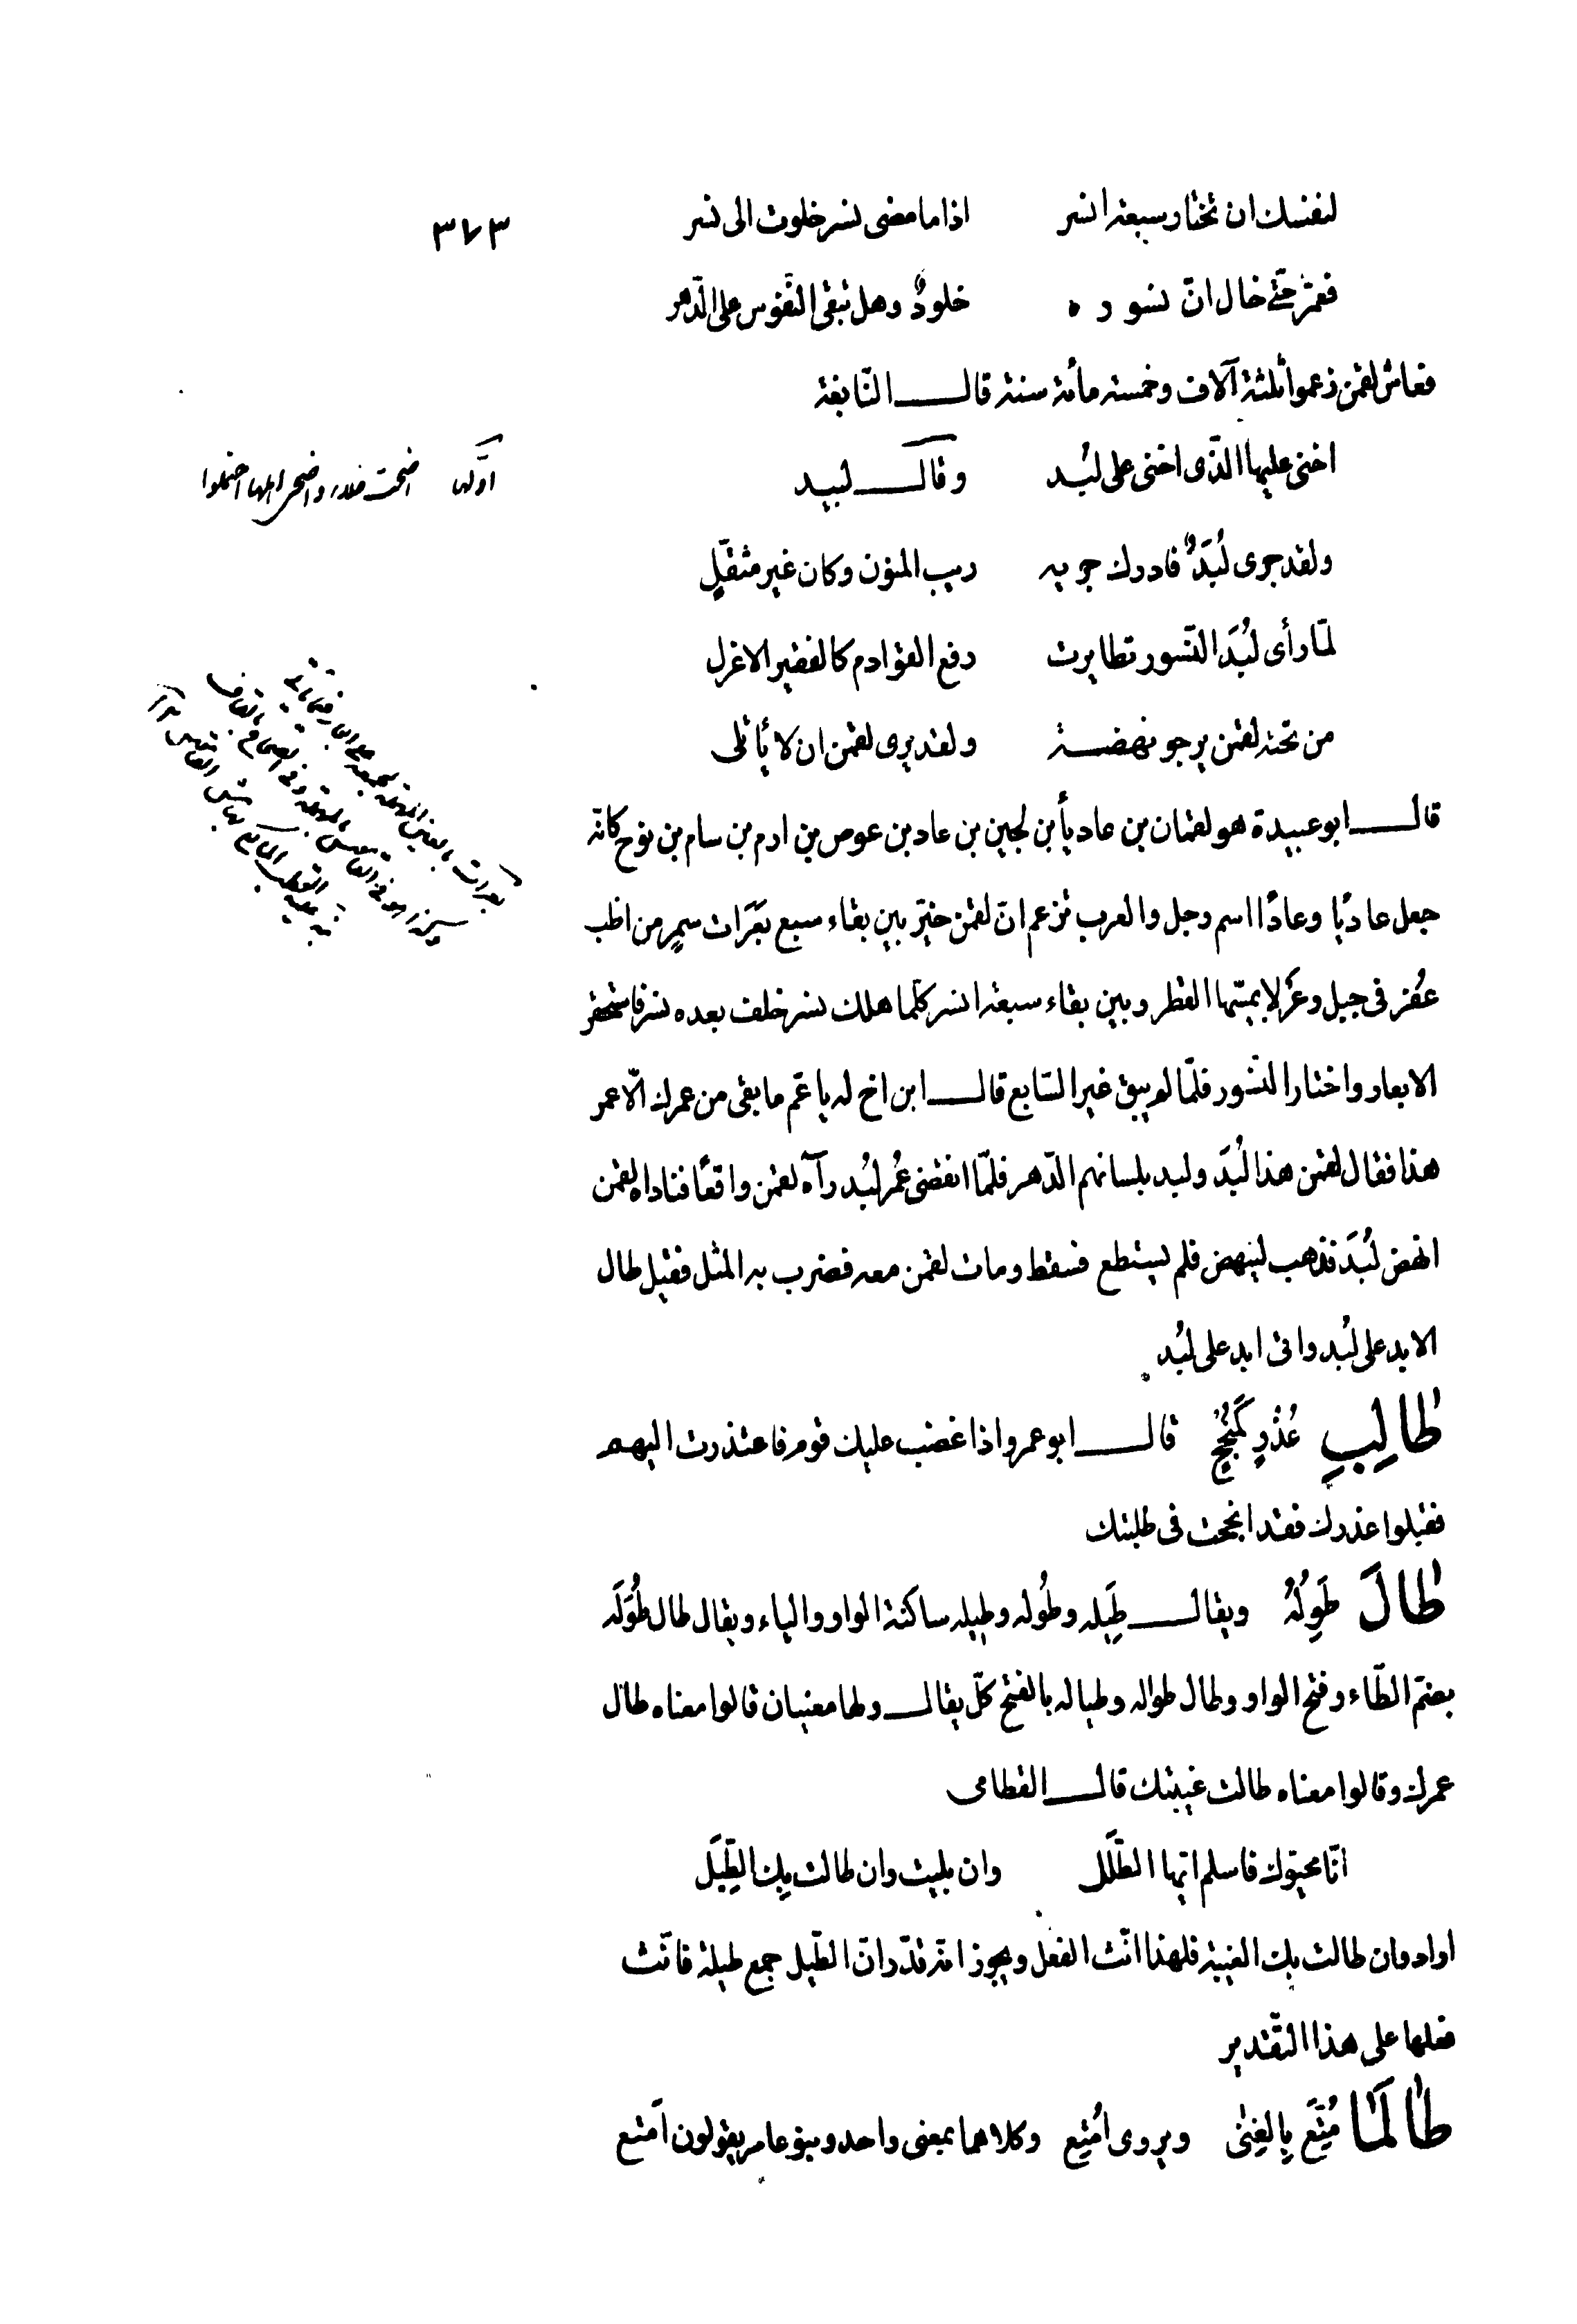 ٣٧٣
لنفسك ان تختار سبعة انسر اذا ما مضى نسر خلوت الى نسر
فعمّر حتّى خال انّ نسوره خلودٌ وهل تبقى النّفوس على الدّهر
فعاش لقمن زعموا ثلثة آلاف وخمسة مأئة سنة قال النّابغة
اخنى عليها الذّى اخنى على لبُد وقال لبيد
اوّلها اضحت خلاء واضحى اهلها احتملوا
ولقد جرى لُبَدٌ فادرك جريه ريب المنون وكان غير مثقّلٍ
لمّا رأى لُبَدَ النّسور تطايرت رفع القوادم كالفقير الاعزل
من تحته لقمن يرجو نهضة ولقد يرى لقمن ان لا يأتلى
قال ابو عبيدة هو لقمان بن عاديأ بن لجين بن عاد بن عوص بن ارم بن سام بن نوح كانّه
جعل عاديًا وعادًا اسم رجل والعرب تزعم انّ لقمن خيّر بين بقاء سبع بَعَرَات سمرٍ من اظب
عُفر فى جبل وعر لا يمسّها القطر وبين بقاء سبعة انسر كلّما هلك نسر خلف بعده نسر فاستحقر
الابعار واختار النّسور فلمّا لم يبق غير السّابع قال ابن اخ له يا عمّ ما بقى من عمرك الّا عمر
هذا فقال لقمن هذا لُبَدَ ولبد بلسانهم الدّهر فلمّا انقضى عُمر لبُد رآه لقمن واقعًا فناداه لقمن
انهض لُبَدَ فذهب لينهض فلم يستطع فسقط ومات لقمن معه فضرب به المثل فقيل طال
الابد على لُبد واتى ابد على لُبُد
طَالِبِ عُذْرٍ كَمُنْجِحٍ قال ابو عمرو اذا غضب عليك قوم فاعتذرت اليهم
فقبلوا عذرك فقد انجحت فى طلبتك
طَالَ طَوِلُهُ ويقال طِيَله وطُوله وطيله ساكنة الواو والياء ويقال طال طُوَلَه
بضمّ الطّاء وفتح الواو وطال طواله وطياله بالفتح كلّ يقال ولها معنيان قالوا معناه طال
عمرك وقالوا معناه طالت غيبتك قال القطامى
انّا محيّوك فاسلم ايّها الطّلَل وان بليت وان طالت بك الطِّيَل
اراد وان طالت بك الغيبة فلهذا انّث الفعل ويجوز انّه قدّر انّ الطّيل جمع طيلة فانّث
فعلها على هذا التّقدير
طَالَمَا مُتِّعَ بِالغِنٰى ويروى اُمْتِع وكلاهما بمعنى واحد وبنو عامر يقولون اَمتع